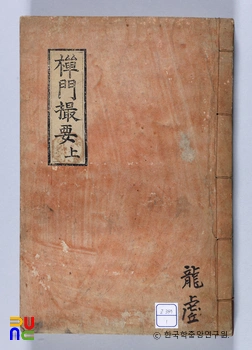 禪門撮要 上
龍虛
ⓒ 한국학중앙연구원